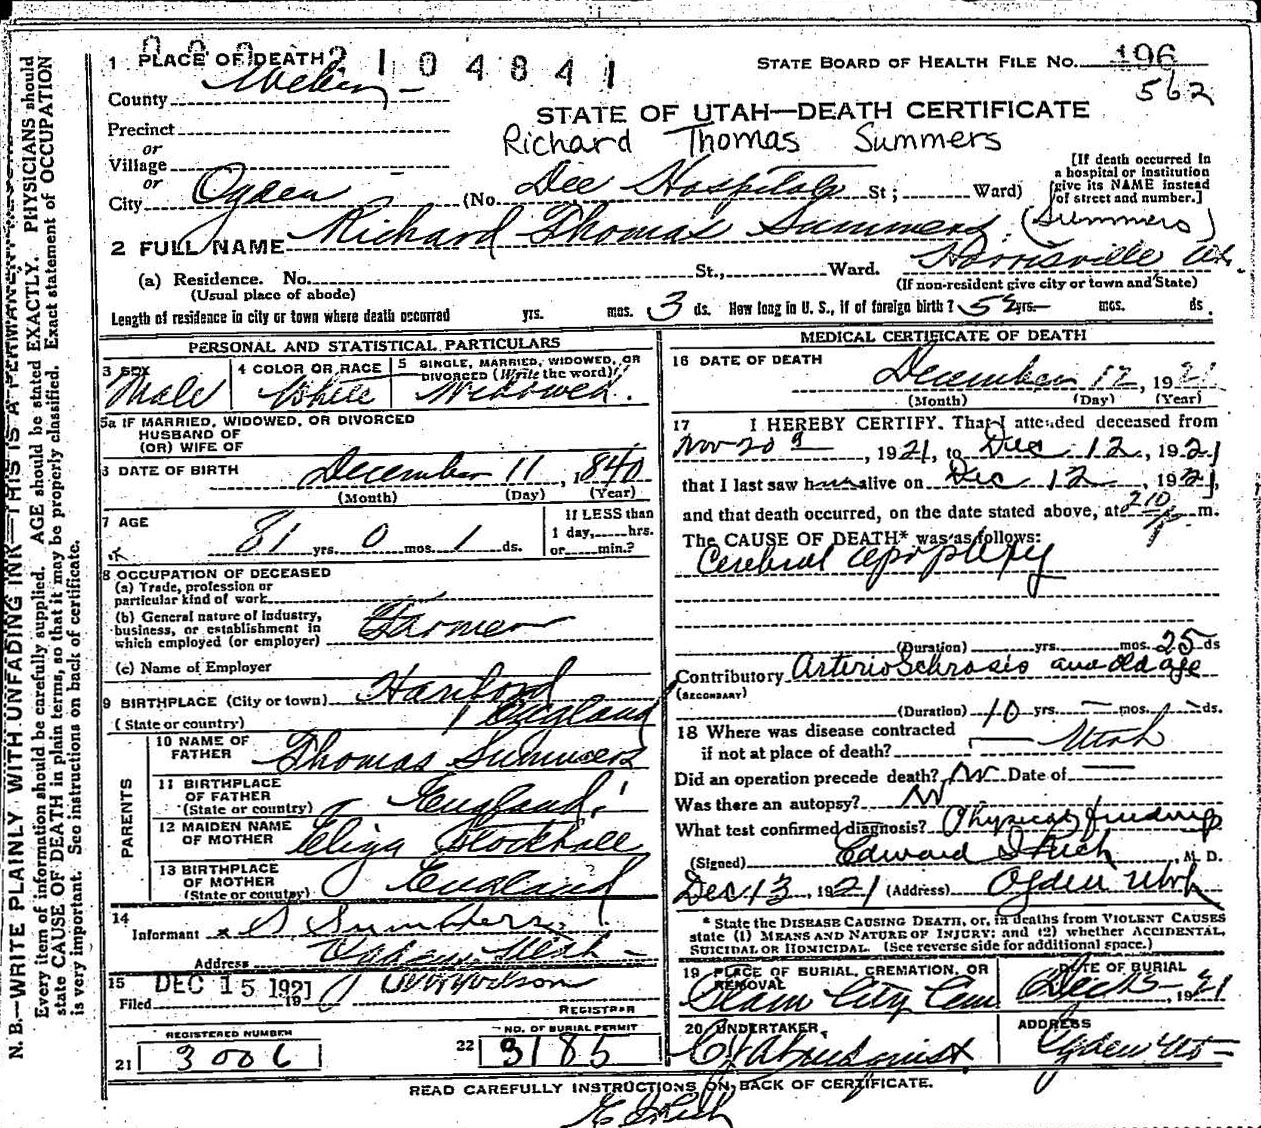 0002104841
1 PLACE OF DEATH
STATE BOARD OF HEALTH FILE NO. 196
562
County Weber
STATE OF UTAH—DEATH CERTIFICATE
Precinct
Richard Thomas Summers
or
Village
or
City Ogden (No. Dee Hospital St; Ward)
[If death occurred in
a hospital or institution
give its NAME instead
of street and number.]
2 FULL NAME Richard Thomas Summers. (Summers)
(a) Residence. No. St., Ward. Harrisville Ut.
(Usual place of abode) (If non-resident give city or town and State)
Length of residence in city or town where death occurred yrs. mos. 3 ds. How long in U. S., if of foreign birth? 52 yrs. mos. ds.
PERSONAL AND STATISTICAL PARTICULARS
3 SEX Male
4 COLOR OR RACE White
5 SINGLE, MARRIED, WIDOWED, OR
DIVORCED (Write the word)
Widowed.
5a IF MARRIED, WIDOWED, OR DIVORCED
HUSBAND OF
(OR) WIFE OF
6 DATE OF BIRTH December 11, 1840
(Month) (Day) (Year)
7 AGE 81 yrs. 0 mos. 1 ds.
If LESS than
1 day, hrs.
or min.?
8 OCCUPATION OF DECEASED
(a) Trade, profession or
particular kind of work
(b) General nature of industry,
business, or establishment in
which employed (or employer) Farmer
(c) Name of Employer
9 BIRTHPLACE (City or town)
(State or country) England
PARENTS
10 NAME OF
FATHER Thomas Summers
11 BIRTHPLACE
OF FATHER
(State or country) England
12 MAIDEN NAME
OF MOTHER Eliza Stockhall
13 BIRTHPLACE
OF MOTHER
(State or country) England
14
Informant x S Summers
Address Utah
15 Filed DEC 15 1921
REGISTRAR
REGISTERED NUMBER
21 3006
NO. OF BURIAL PERMIT
22 3185
MEDICAL CERTIFICATE OF DEATH
16 DATE OF DEATH December 12, 1921
(Month) (Day) (Year)
17 I HEREBY CERTIFY. That I attended deceased from
Nov 20, 1921, to Dec. 12, 1921
that I last saw h alive on Dec 12, 1921,
and that death occurred, on the date stated above, at 210 P m.
The CAUSE OF DEATH* was as follows:
Cerebral apoplexy
(Duration) yrs. mos. 25 ds
Contributory Arterio Sclrosis and old age
(SECONDARY)
(Duration) 10 yrs. — mos. — ds.
18 Where was disease contracted
if not at place of death? Utah
Did an operation precede death? No Date of
Was there an autopsy? No
What test confirmed diagnosis? Physical findings
(Signed) Edward I Rich, M. D.
Dec 13, 1921 (Address) Ogden Utah
* State the DISEASE CAUSING DEATH, or, in deaths from VIOLENT CAUSES
state (1) MEANS AND NATURE OF INJURY; and (2) whether ACCIDENTAL,
SUICIDAL OR HOMICIDAL. (See reverse side for additional space.)
19 PLACE OF BURIAL, CREMATION, OR
REMOVAL
Plain City Cem
DATE OF BURIAL
Dec 15, 1921
20 UNDERTAKER
ADDRESS
Ogden Ut
READ CAREFULLY INSTRUCTIONS ON BACK OF CERTIFICATE.
E I Rich
N. B.—WRITE PLAINLY WITH UNFADING INK—THIS IS A PERMANENT
Every item of information should be carefully supplied. AGE should be stated EXACTLY. PHYSICIANS should
state CAUSE OF DEATH in plain terms, so that it may be properly classified. Exact statement of OCCUPATION
is very important. See instructions on back of certificate.